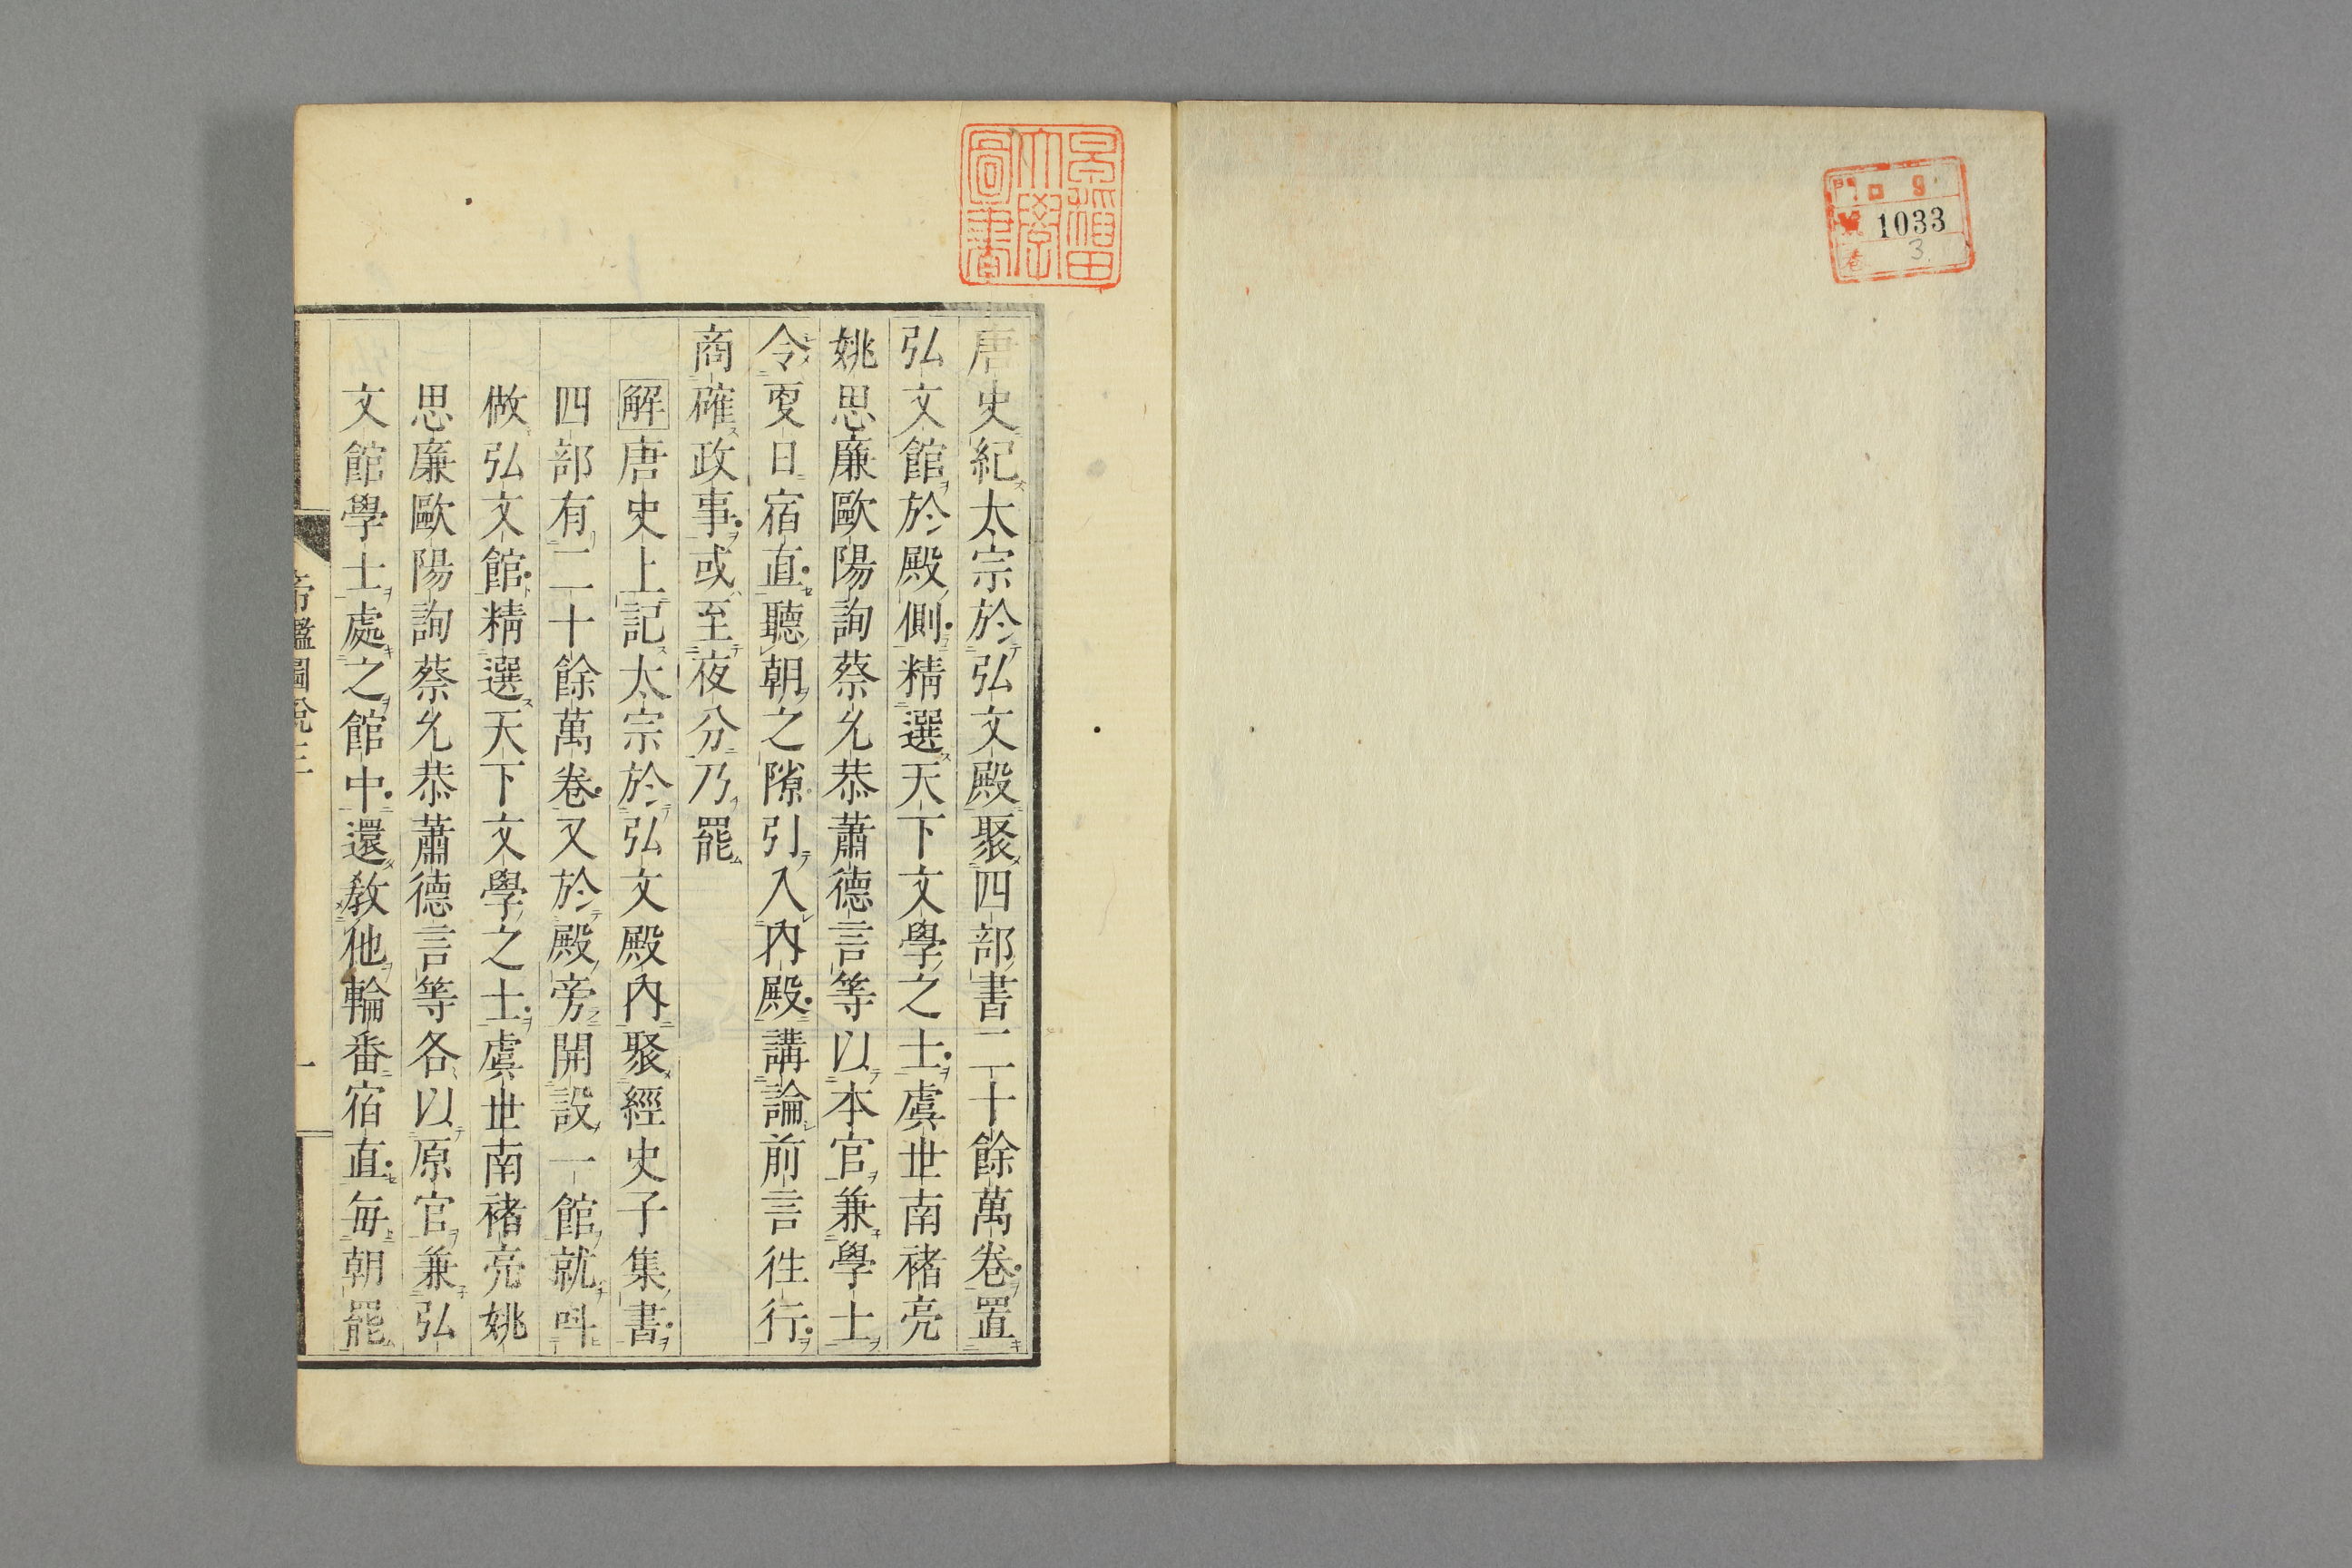 門 ロ 9
號 1033
卷 3
早稲田
大學
圖書
唐史紀太宗於弘文殿聚四部書二十餘萬卷置
弘文館於殿側精選天下文學之士虞世南褚亮
姚思廉歐陽詢蔡允恭蕭德言等以本官兼學士
令更日宿直聽朝之隙引入內殿講論前言徃行
商確政事或至夜分乃罷
解唐史上記太宗於弘文殿內聚經史子集書
四部有二十餘萬卷又於殿旁開設一館就呌
做弘文館精選天下文學之士虞世南褚亮姚
思廉歐陽詢蔡允恭蕭德言等各以原官兼弘
文館學士處之館中還教他輪番宿直每朝罷
帝鑑圖說三
一